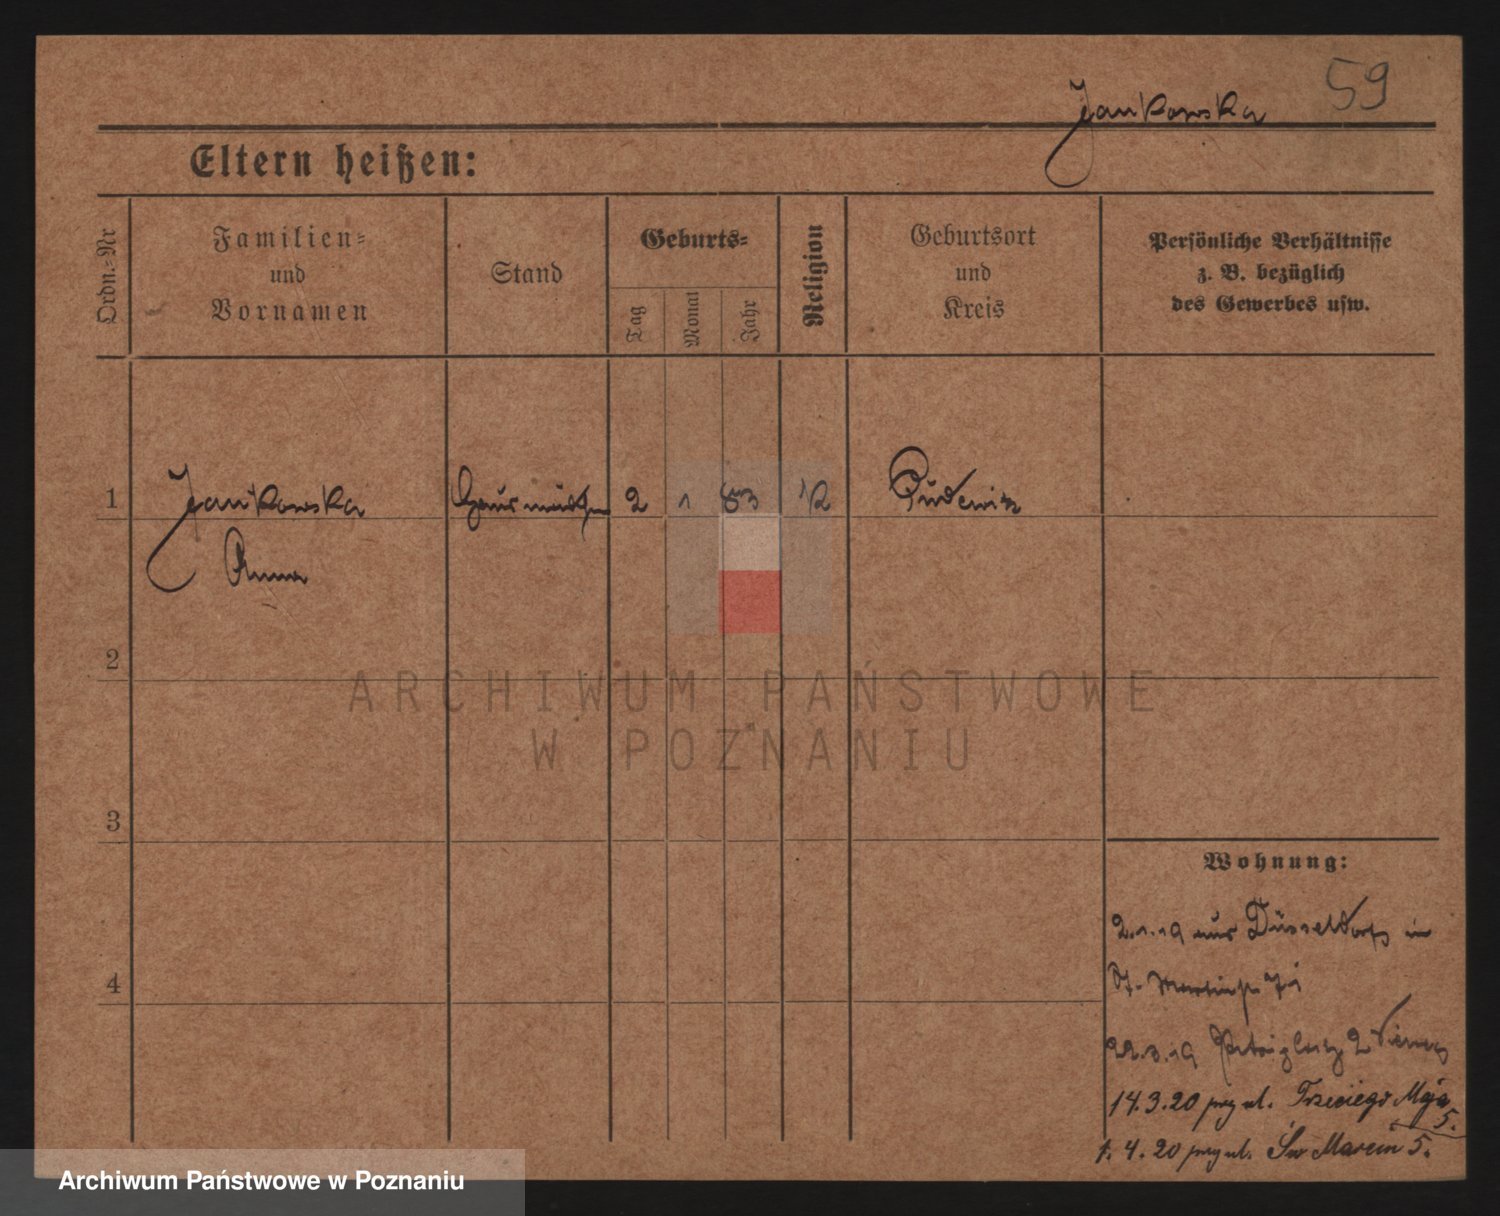 59
Jankowska
Eltern heißen:
Ordn.-Nr
Familien-
und
Vornamen
Stand
Geburts-
Tag
Monat
Jahr
Religion
Geburtsort
und
Kreis
Persönliche Verhältnisse
z. B. bezüglich
des Gewerbes usw.
1
Jankowska
Anna
Hausmädchen
2
1
83
K
Pudewitz
2
3
4
Wohnung:
2.1.19 aus Düsseldorf in
St. Martinstr.
22.3.19 2
14.3.20 przy ul. Trzeciego Maja
5.
1.4.20 przy ul. Św Marcin 5.
ARCHIWUM PAŃSTWOWE
W POZNANIU
Archiwum Państwowe w Poznaniu